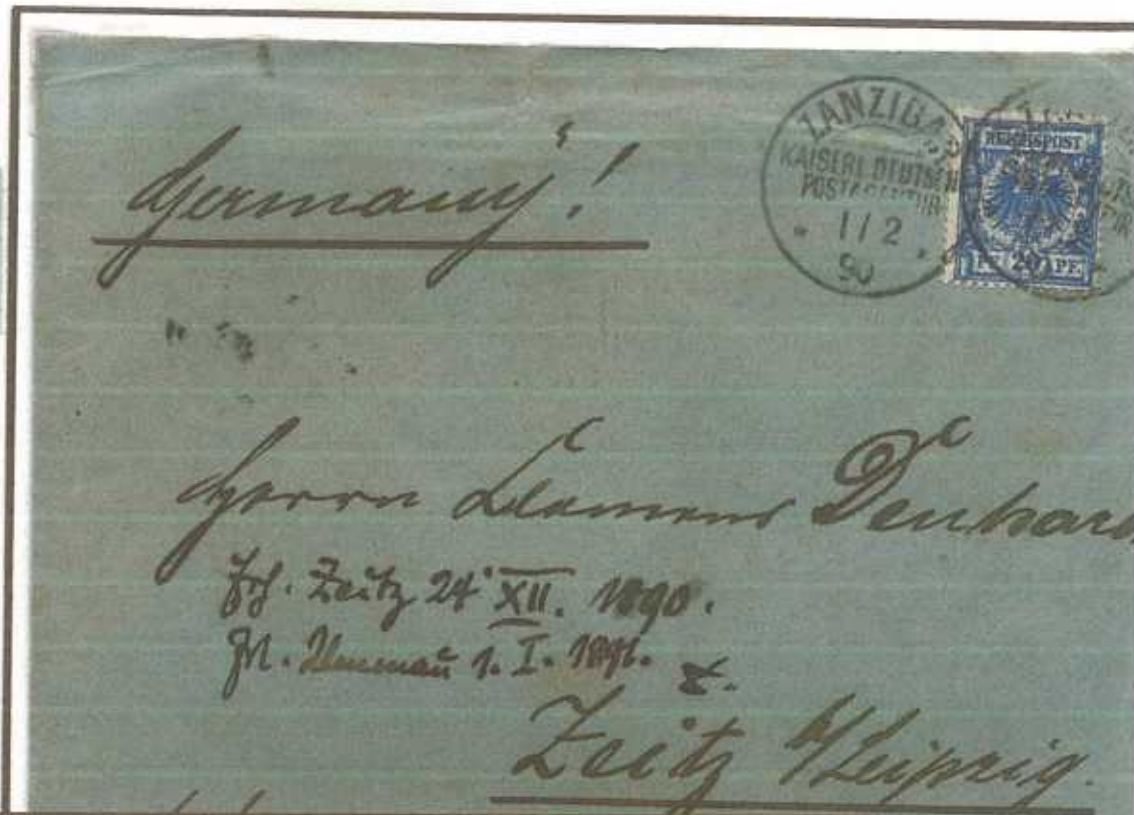 Germany!
ZANZIBA
KAISERL. DEUTSCH
POSTAGENTUR
1/2
90
REICHSPOST
PF. 20 PF.
Herrn Clemens Denhard
Zeitz 24. XII. 1890.
1. I. 1891.
Zeitz b/Leipzig.